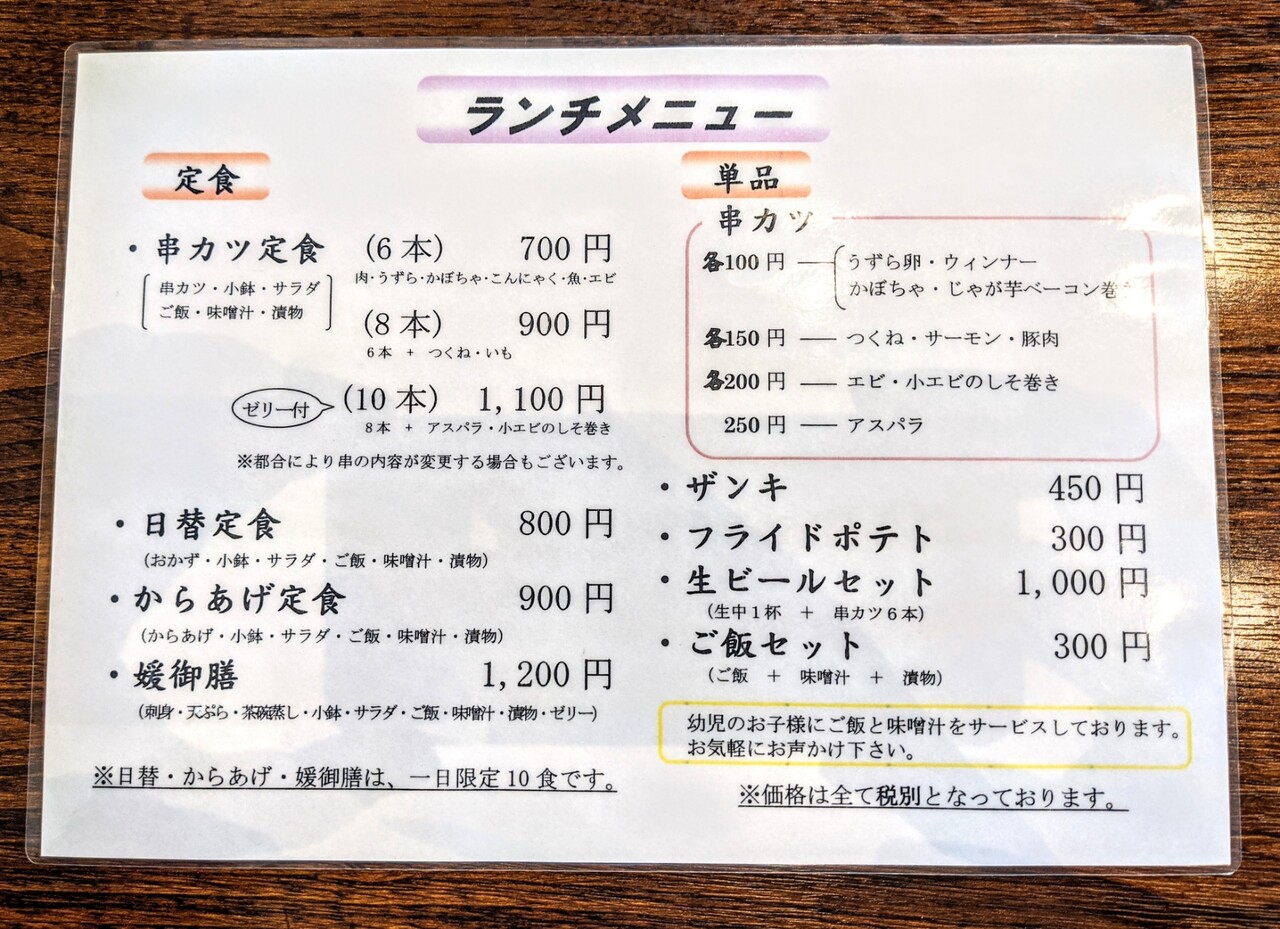 ランチメニュー
定食
・串カツ定食 (6本) 700円
肉・うずら・かぼちゃ・こんにゃく・魚・エビ
串カツ・小鉢・サラダ
ご飯・味噌汁・漬物
(8本) 900円
6本 + つくね・いも
ゼリー付 (10本) 1,100円
8本 + アスパラ・小エビのしそ巻き
※都合により串の内容が変更する場合もございます。
・日替定食 800円
(おかず・小鉢・サラダ・ご飯・味噌汁・漬物)
・からあげ定食 900円
(からあげ・小鉢・サラダ・ご飯・味噌汁・漬物)
・媛御膳 1,200円
(刺身・天ぷら・茶碗蒸し・小鉢・サラダ・ご飯・味噌汁・漬物・ゼリー)
※日替・からあげ・媛御膳は、一日限定10食です。
単品
串カツ
各100円 ― うずら卵・ウィンナー
かぼちゃ・じゃが芋ベーコン巻き
各150円 ― つくね・サーモン・豚肉
各200円 ― エビ・小エビのしそ巻き
250円 ― アスパラ
・ザンキ 450円
・フライドポテト 300円
・生ビールセット 1,000円
(生中1杯 + 串カツ6本)
・ご飯セット 300円
(ご飯 + 味噌汁 + 漬物)
幼児のお子様にご飯と味噌汁をサービスしております。
お気軽にお声かけ下さい。
※価格は全て税別となっております。